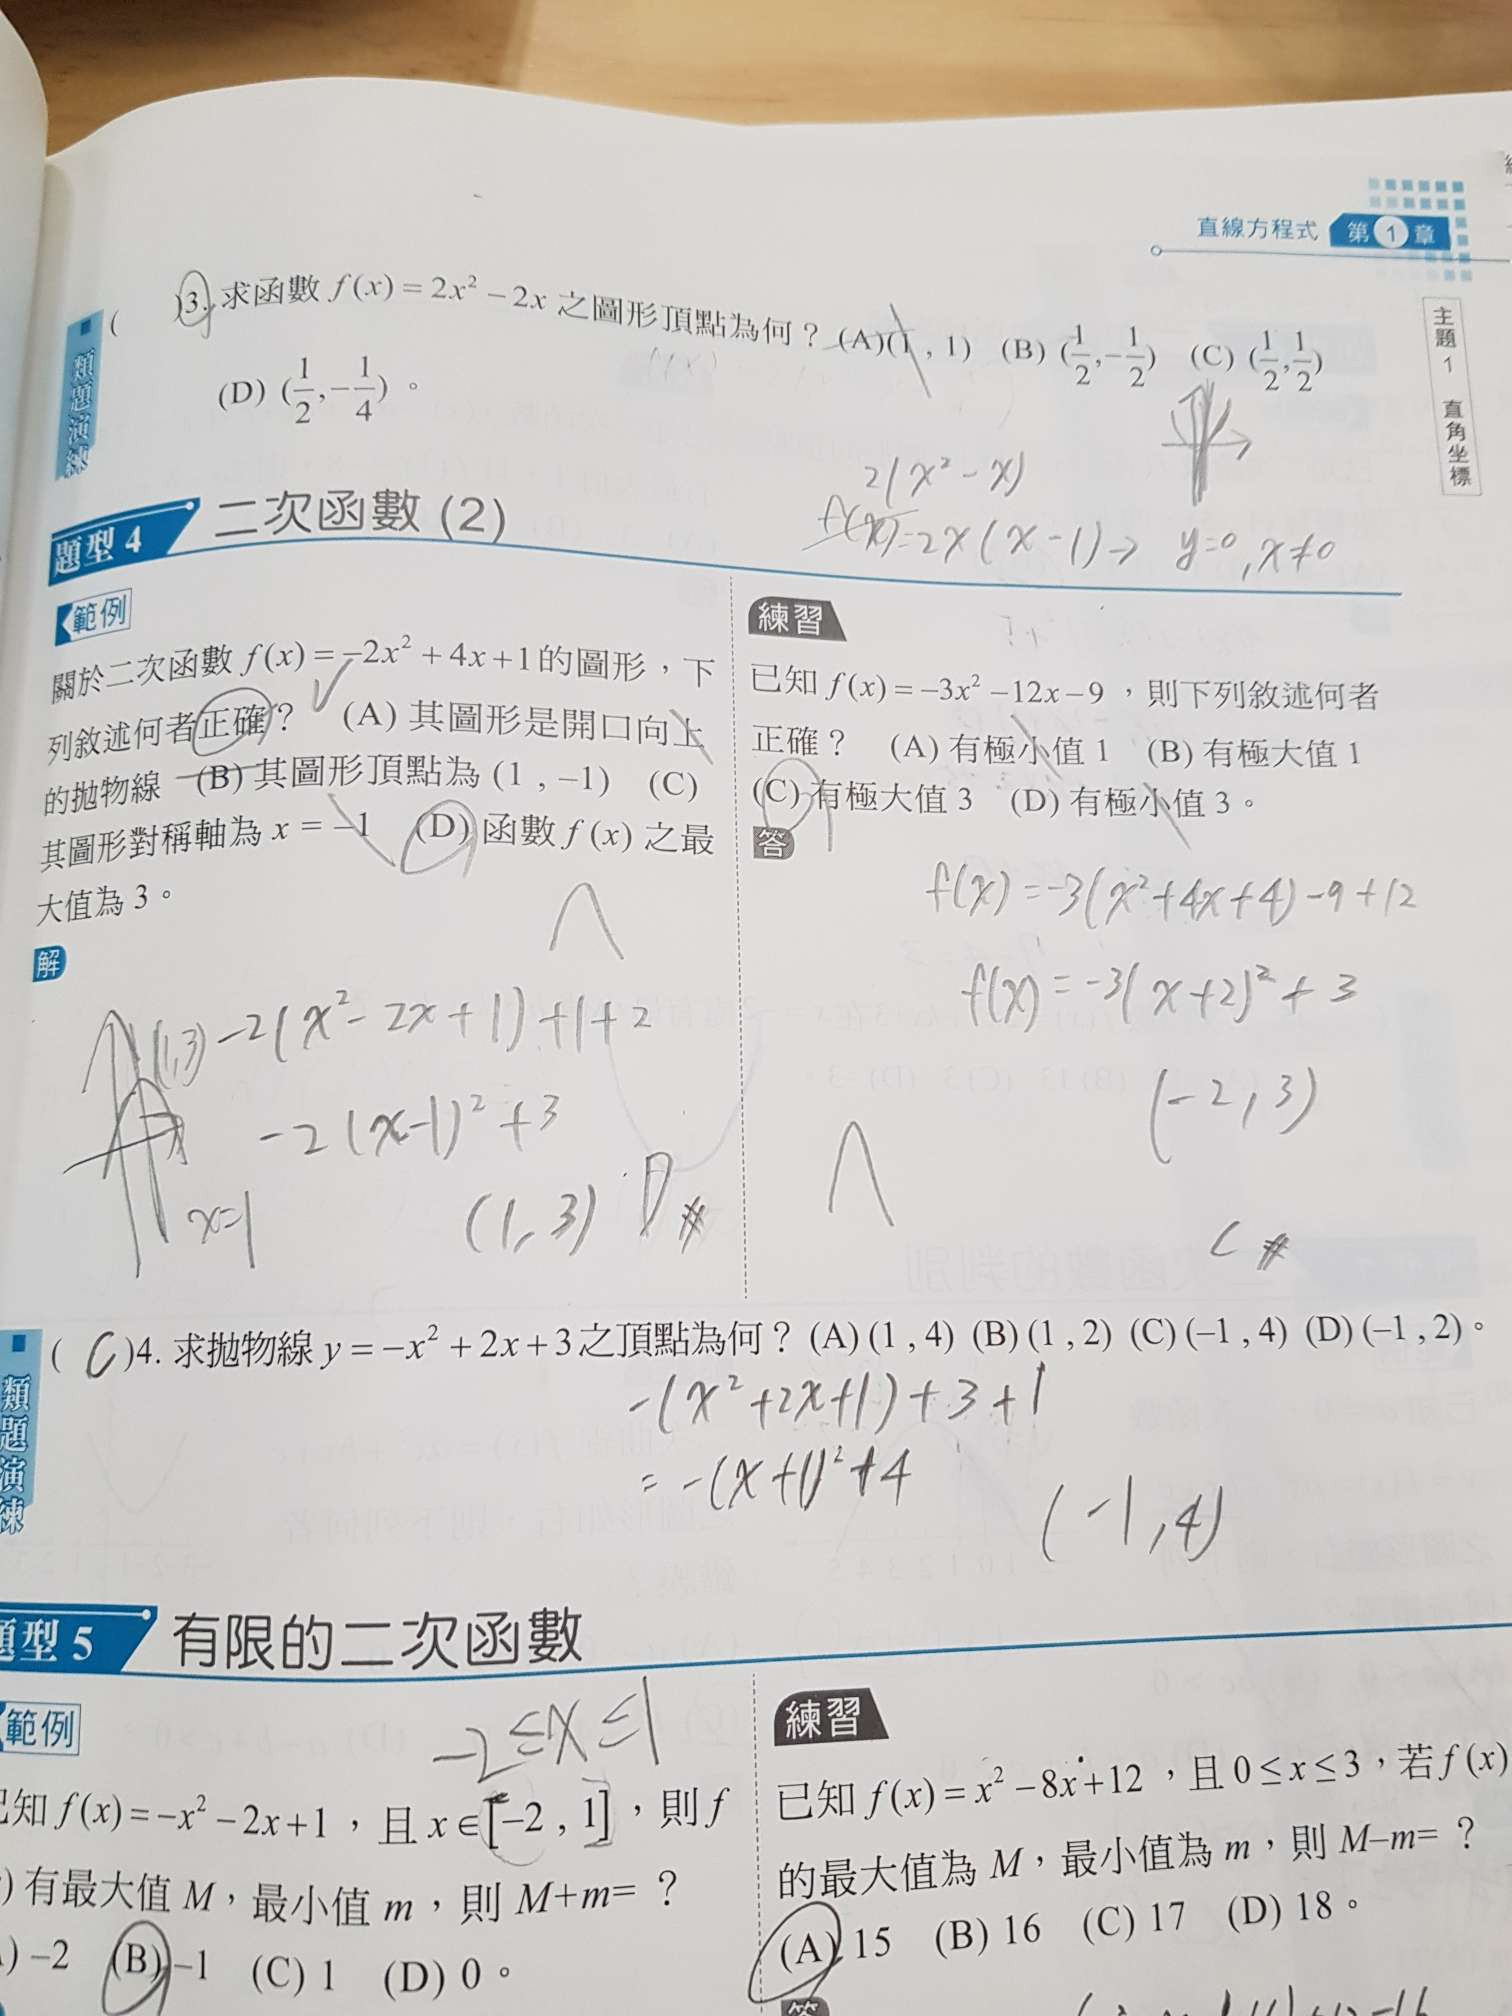 直線方程式 第1章
主題1 直角坐標
類題演練
( )3. 求函數 f(x) = 2x² − 2x 之圖形頂點為何？ (A)(1 , 1) (B) (1/2, −1/2) (C) (1/2, 1/2)
(D) (1/2, −1/4) 。
2(x² − x)
f(x) = 2x(x − 1) → y=0, x≠0
題型4 二次函數 (2)
範例
關於二次函數 f(x) = −2x² + 4x + 1 的圖形，下
列敘述何者正確？ (A) 其圖形是開口向上
的拋物線 (B) 其圖形頂點為 (1 , −1) (C)
其圖形對稱軸為 x = −1 (D) 函數 f(x) 之最
大值為 3。
解
(1,3) −2(x² − 2x + 1) + 1 + 2
−2(x−1)² + 3
x=1
(1, 3) D #
練習
已知 f(x) = −3x² −12x − 9 ，則下列敘述何者
正確？ (A) 有極小值 1 (B) 有極大值 1
(C) 有極大值 3 (D) 有極小值 3。
答
f(x) = −3(x² + 4x + 4) − 9 + 12
f(x) = −3(x+2)² + 3
(−2, 3)
C #
類題演練
( C )4. 求拋物線 y = −x² + 2x + 3 之頂點為何？ (A) (1 , 4) (B) (1 , 2) (C) (−1 , 4) (D) (−1 , 2)。
−(x² + 2x + 1) + 3 + 1
= −(x+1)² + 4
(−1, 4)
題型5 有限的二次函數
範例
−2 ≤ x ≤ 1
已知 f(x) = −x² − 2x + 1 ，且 x ∈ [−2 , 1] ，則 f
) 有最大值 M，最小值 m，則 M+m= ？
) −2 (B) −1 (C) 1 (D) 0。
練習
已知 f(x) = x² − 8x + 12 ，且 0 ≤ x ≤ 3，若 f(x)
的最大值為 M，最小值為 m，則 M−m= ？
(A) 15 (B) 16 (C) 17 (D) 18。
答